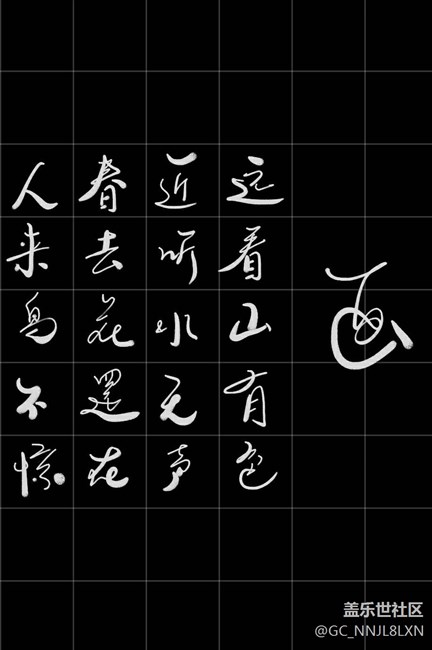 画
远看山有色
近听水无声
春去花還在
人来鸟不惊
盖乐世社区
@GC_NNJL8LXN